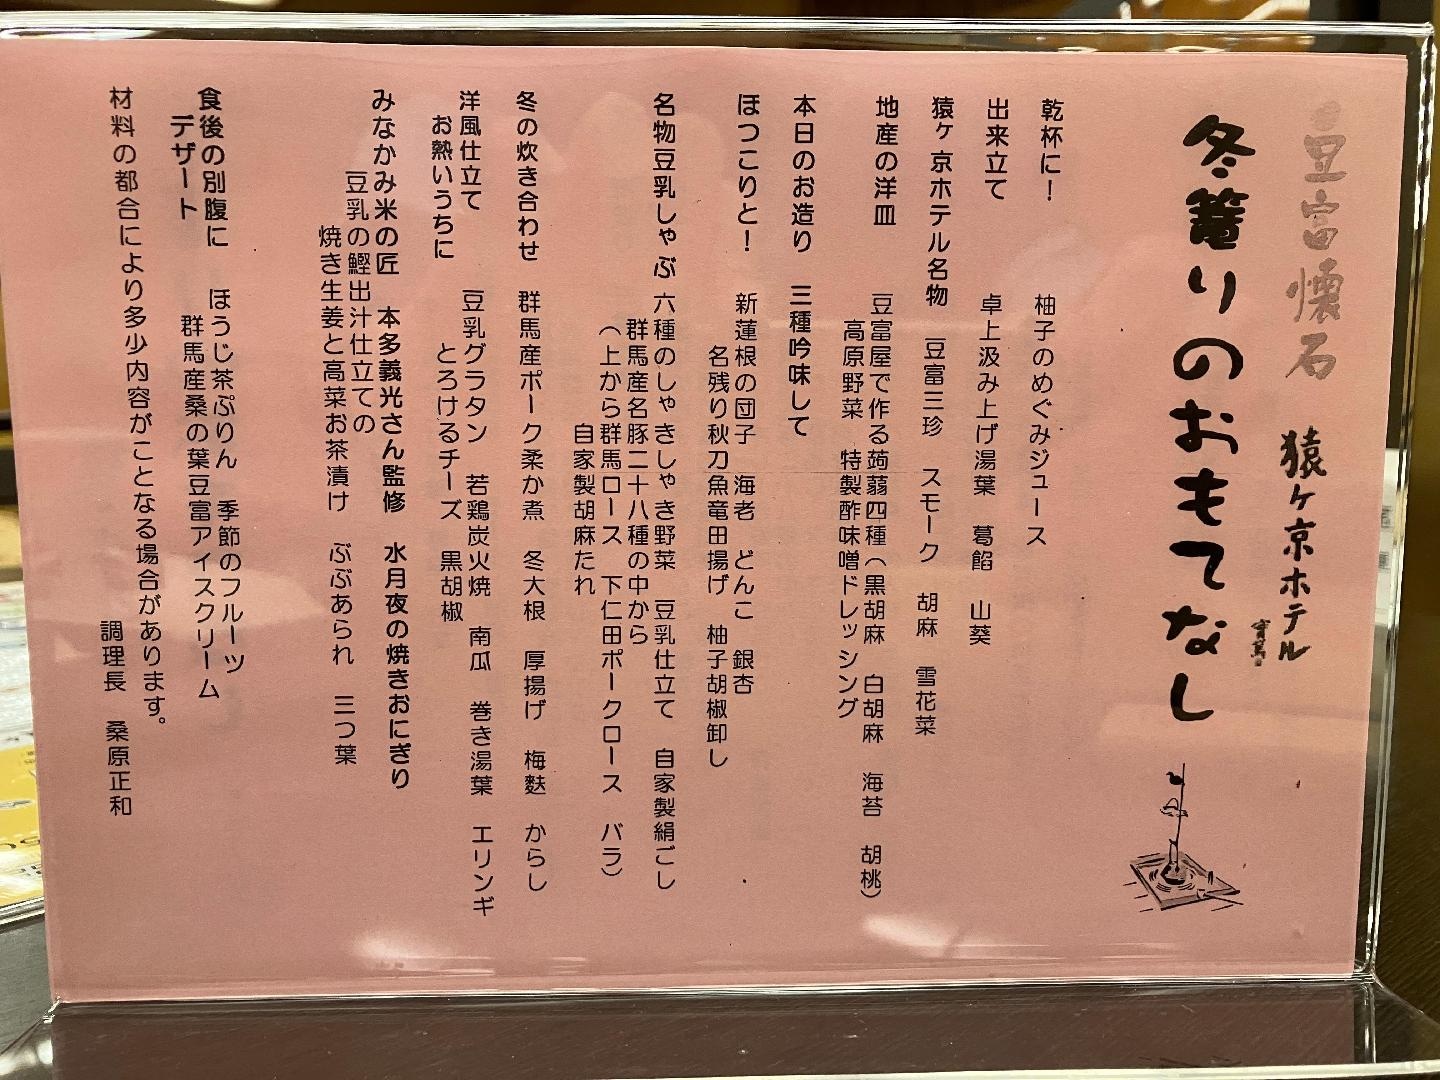 豆富懐石
猿ヶ京ホテル
冬篭りのおもてなし
乾杯に! 柚子のめぐみジュース
出来立て 卓上汲み上げ湯葉 葛餡 山葵
猿ヶ京ホテル名物 豆富三珍 スモーク 胡麻 雪花菜
地産の洋皿 豆富屋で作る蒟蒻四種(黒胡麻 白胡麻 海苔 胡桃)
高原野菜 特製酢味噌ドレッシング
本日のお造り 三種吟味して
ほつこりと! 新蓮根の団子 海老 どんこ 銀杏
名残り秋刀魚竜田揚げ 柚子胡椒卸し
名物豆乳しゃぶ 六種のしゃきしゃき野菜 豆乳仕立て 自家製絹ごし
群馬産名豚二十八種の中から
(上から群馬ロース 下仁田ポークロース バラ)
自家製胡麻たれ
冬の炊き合わせ 群馬産ポーク柔か煮 冬大根 厚揚げ 梅麩 からし
洋風仕立て 豆乳グラタン 若鶏炭火焼 南瓜 巻き湯葉 エリンギ
お熱いうちに とろけるチーズ 黒胡椒
みなかみ米の匠 本多義光さん監修 水月夜の焼きおにぎり
豆乳の鰹出汁仕立ての
焼き生姜と高菜お茶漬け ぶぶあられ 三つ葉
食後の別腹に ほうじ茶ぷりん 季節のフルーツ
デザート 群馬産桑の葉豆富アイスクリーム
材料の都合により多少内容がことなる場合があります。
調理長 桑原正和